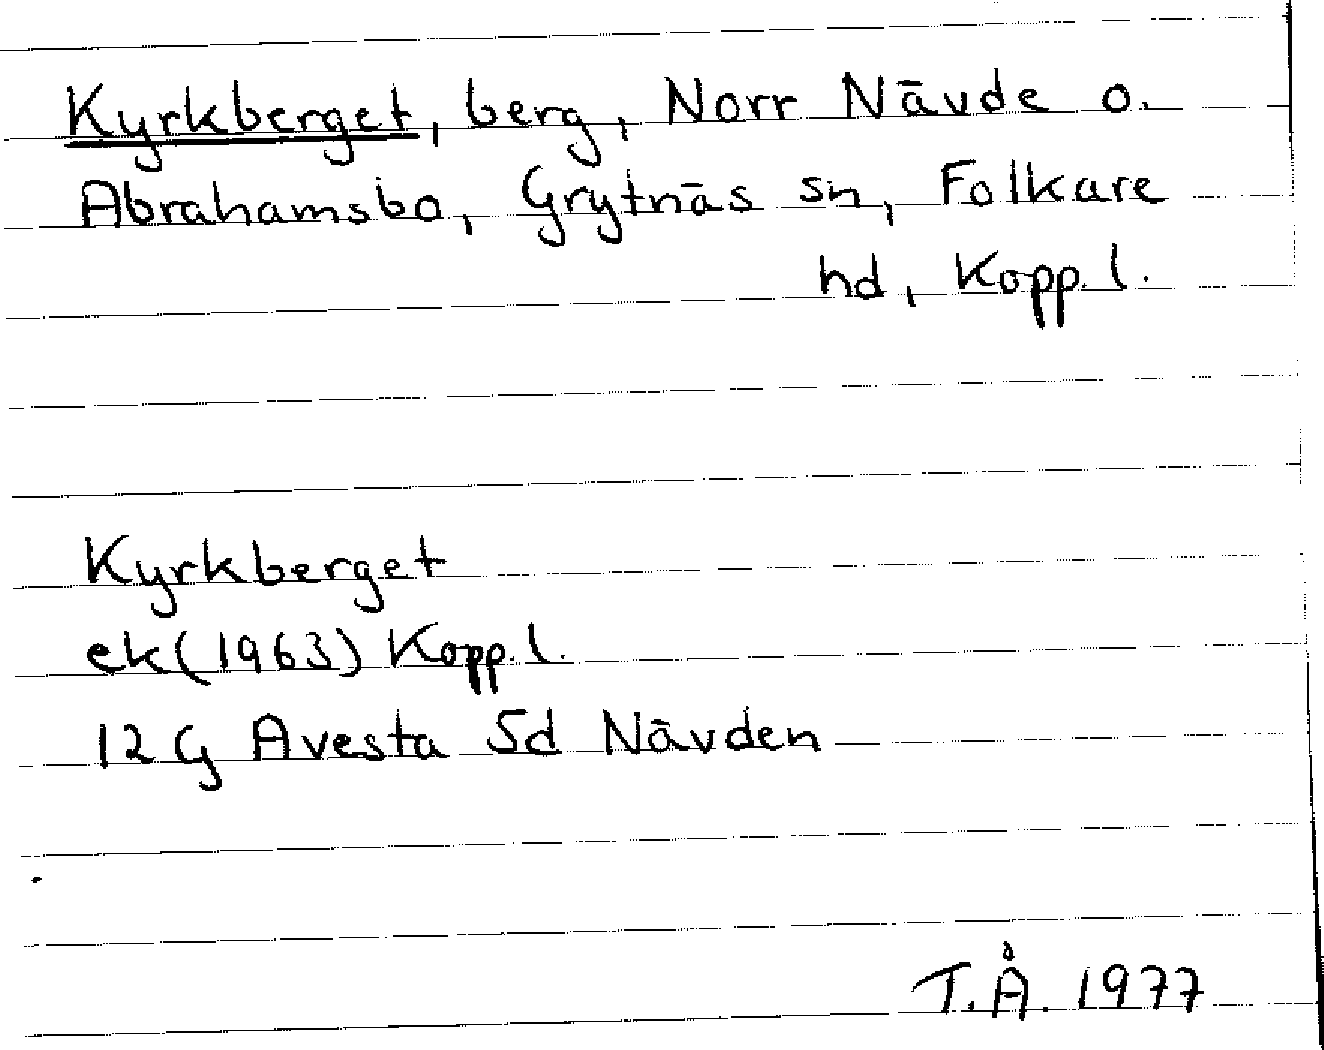 Kyrkberget, berg, Norr Nävde o.
Abrahamsbo, Grytnäs sn, Folkare
hd, Kopp. l.
Kyrkberget
ek (1963) Kopp. l.
12 G Avesta Sd Nävden
T.Å. 1977